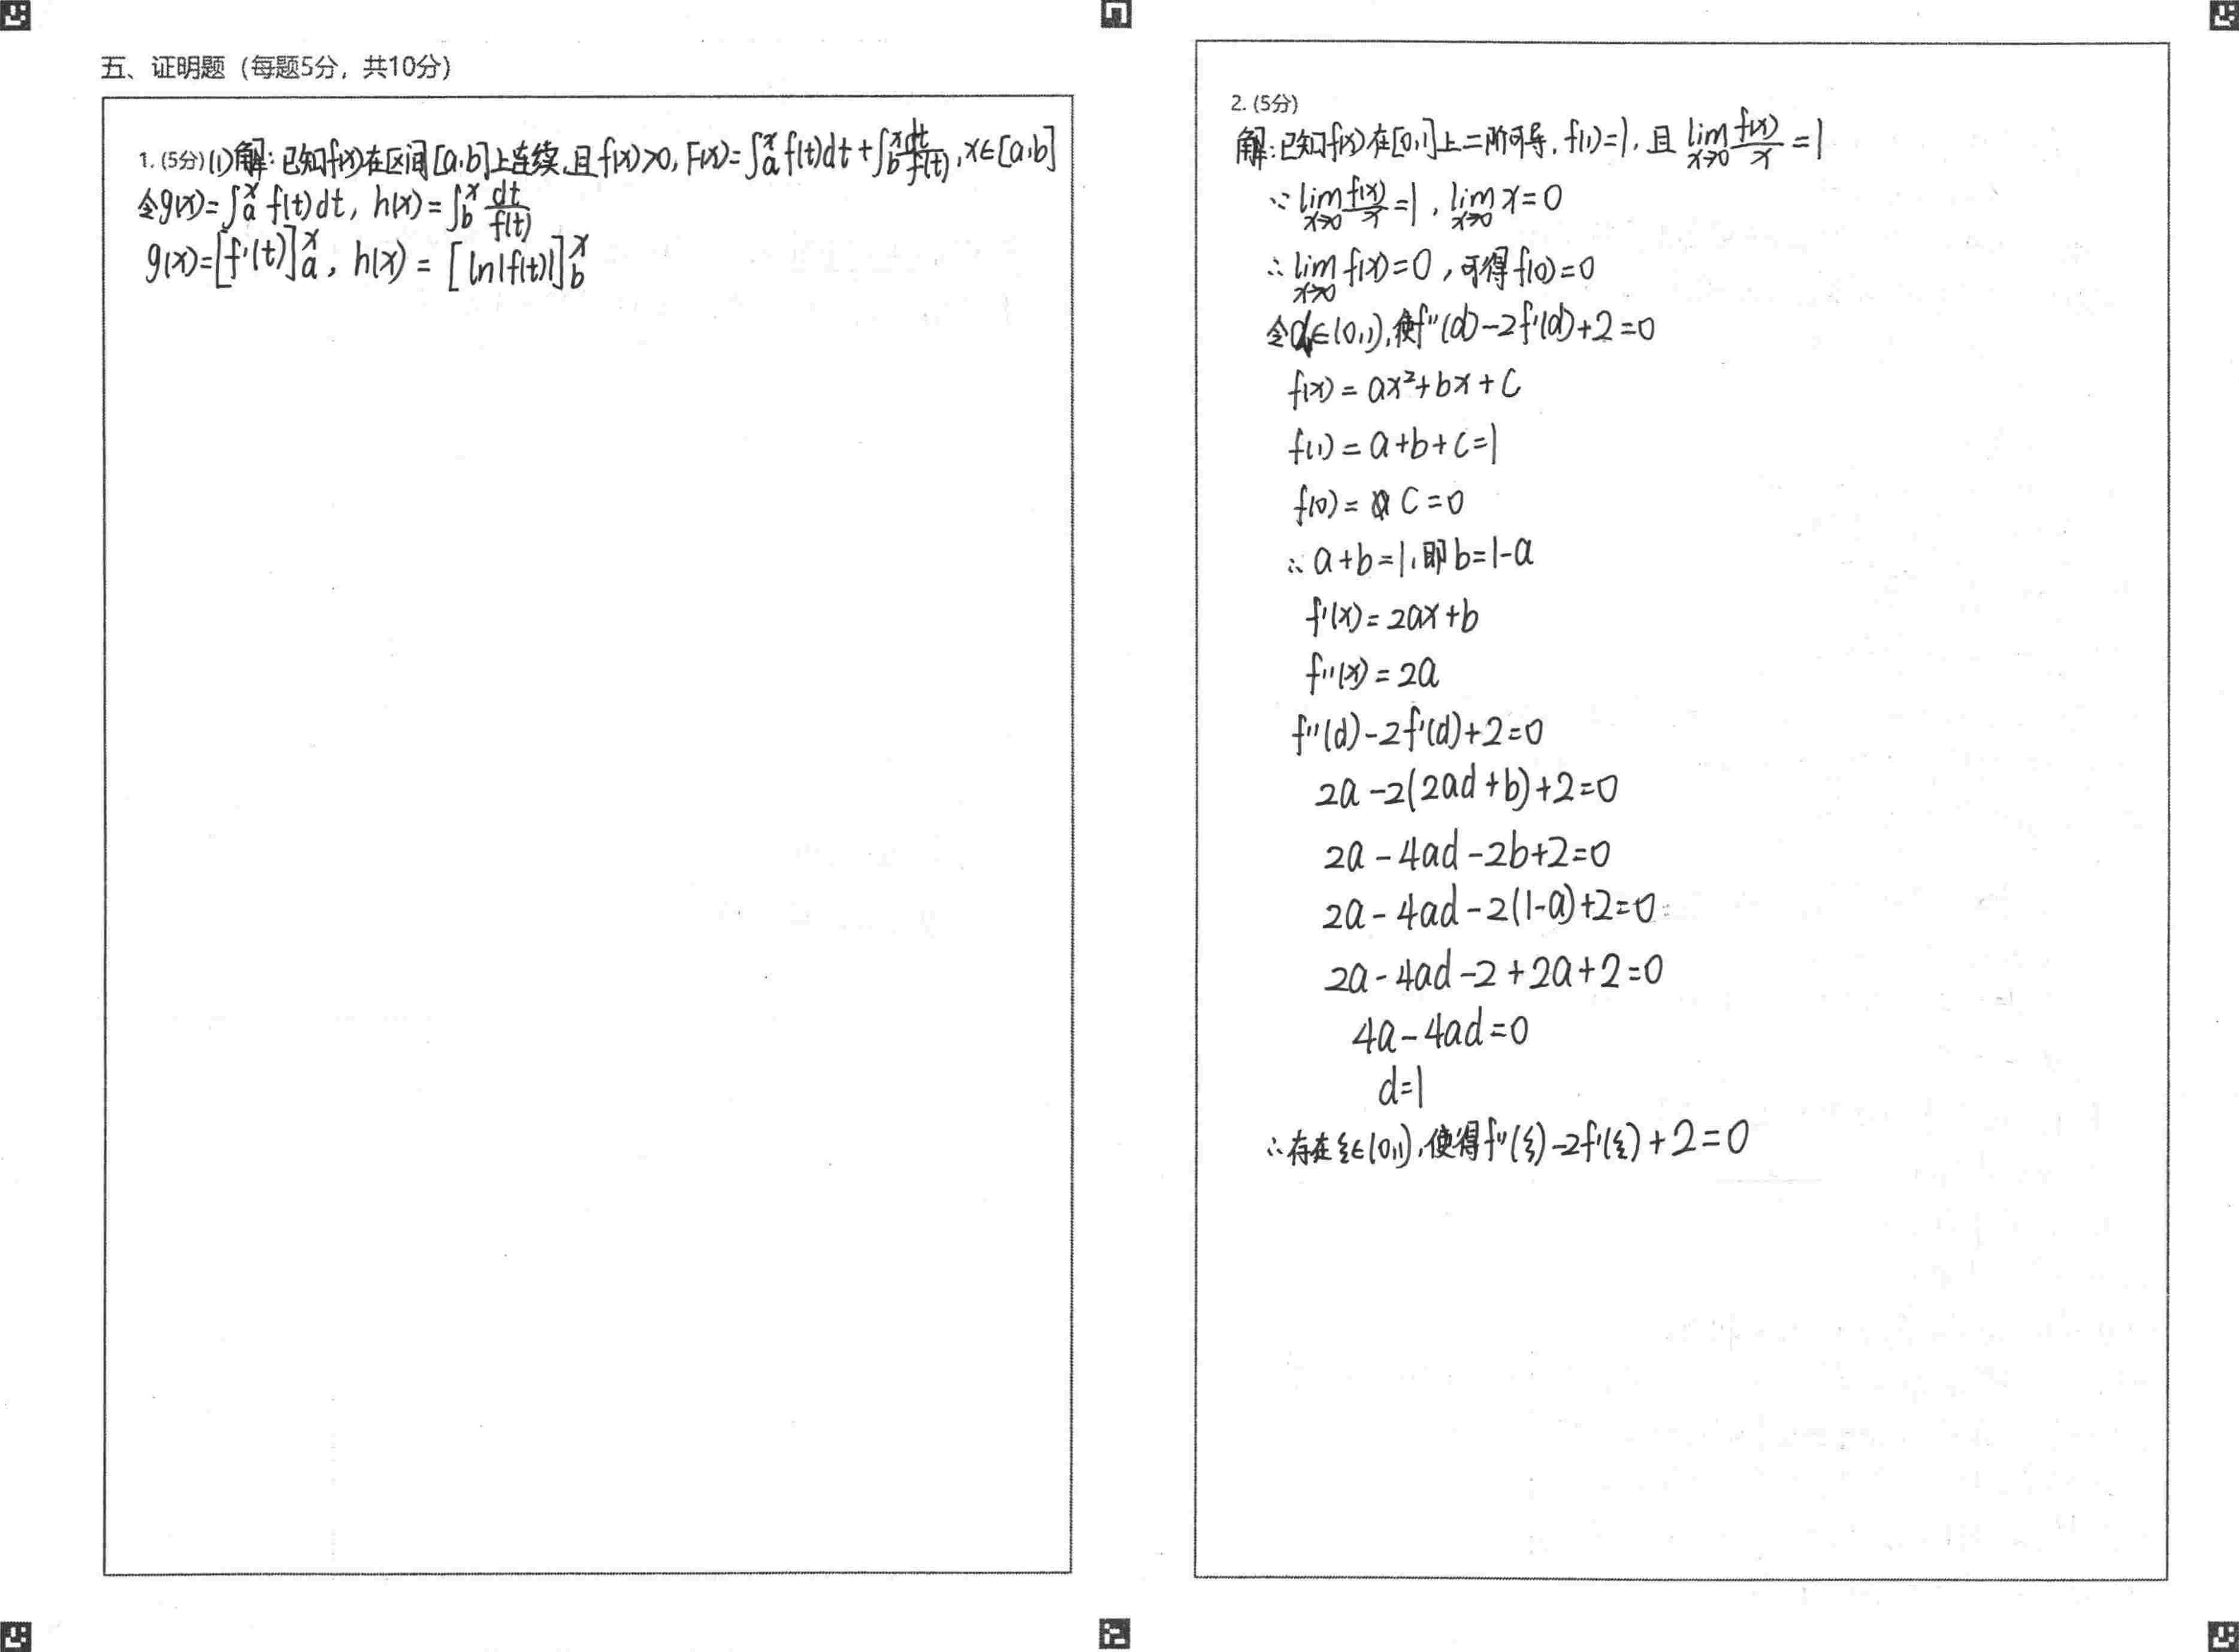 五、证明题（每题5分，共10分）
1. (5分) (1)解：已知f(x)在区间[a,b]上连续,且f(x)>0, F(x)=∫ₐˣ f(t)dt+∫_b^x dt/f(t), x∈[a,b]
令g(x)=∫ₐˣ f(t)dt, h(x)=∫_b^x dt/f(t)
g(x)=[f'(t)]ₐˣ, h(x)=[ln|f(t)|]_b^x
2. (5分)
解：已知f(x)在[0,1]上二阶可导, f(1)=1, 且 lim_{x→0} f(x)/x =1
∵ lim_{x→0} f(x)/x =1, lim_{x→0} x=0
∴ lim_{x→0} f(x)=0, 可得f(0)=0
令d∈(0,1),使f''(d)-2f'(d)+2=0
f(x)=ax²+bx+c
f(1)=a+b+c=1
f(0)= c=0
∴a+b=1,即b=1-a
f'(x)=2ax+b
f''(x)=2a
f''(d)-2f'(d)+2=0
2a-2(2ad+b)+2=0
2a-4ad-2b+2=0
2a-4ad-2(1-a)+2=0
2a-4ad-2+2a+2=0
4a-4ad=0
d=1
∴存在ξ∈(0,1),使得f''(ξ)-2f'(ξ)+2=0